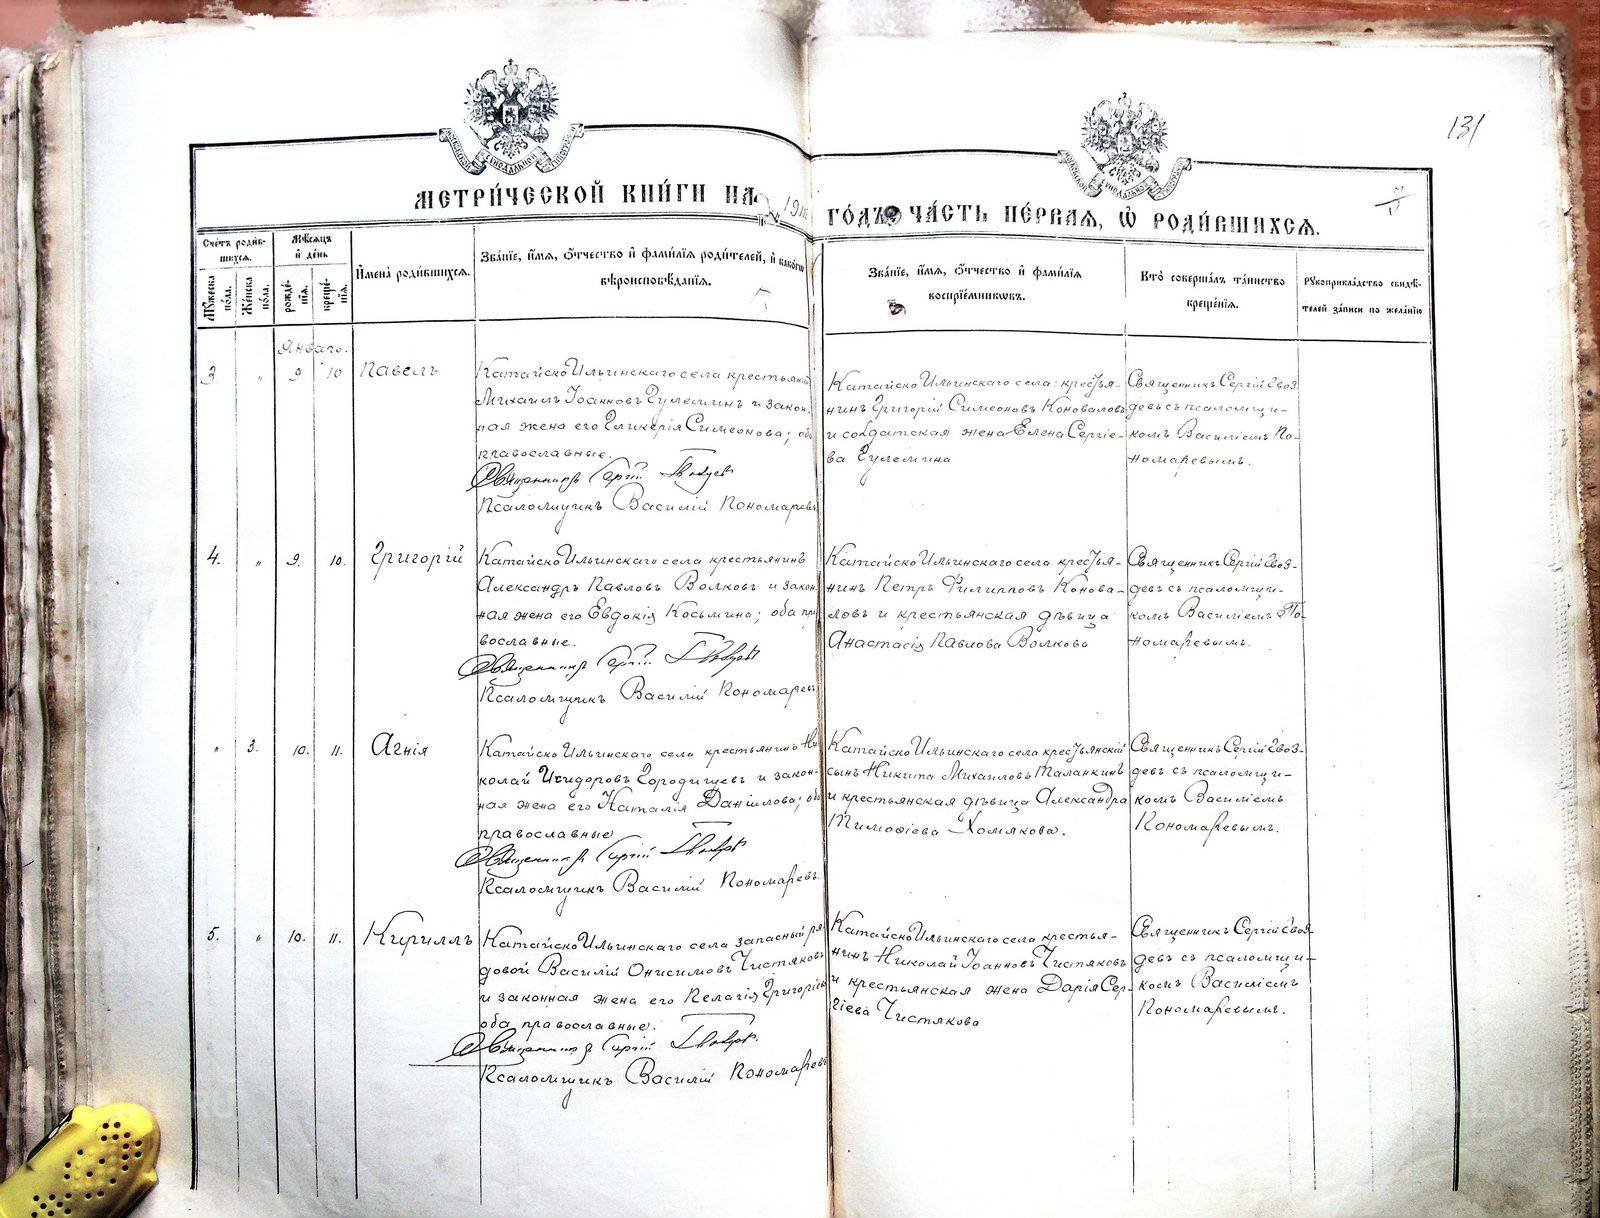 131
МЕТРИ́ЧЕСКОЙ КНИ́ГИ НА 191 ГО́ДЪ ЧА́СТЬ ПЕ́РВАЯ, Ѡ РОДИ́ВШИХСЯ.
Сче́тъ роди́вшихся.
Му́жеска по́ла.
Же́нска по́ла.
Мѣ́сяцъ и де́нь
рожде́нія.
креще́нія.
Имена̀ роди́вшихся.
Зва́ніе, и́мя, о́тчество и фами́лія роди́телей, и како́гѡ
вѣроисповѣ́данія.
Зва́ніе, и́мя, о́тчество и фами́лія
воспріе́мникѡвъ.
Кто̀ соверша́лъ та́инство
креще́нія.
Рукоприкла́дство свидѣ́-
телей за́писи по жела́нію.
Январь.
3 " 9 10 Павелъ
КатайскоИльинскаго села крестьянинъ
Михаилъ Іоанновъ Гулеминъ и закон-
ная жена его Гликерія Симеонова; оба
православные.
Священникъ Сергій Гвоздевъ
Псаломщикъ Василій Пономаревъ
КатайскоИльинскаго села: крестья-
нинъ Григорій Симеоновъ Коноваловъ
и солдатская жена Елена Сергіе-
ва Гулемина
Священникъ Сергій Гвоз-
девъ съ псаломщи-
комъ Василіемъ По-
номаревымъ.
4. " 9. 10. Григорій
КатайскоИльинскаго села крестьянинъ
Александръ Павловъ Волковъ и закон-
ная жена его Евдокія Косьмина; оба пра
вославные.
Священникъ Сергій Гвоздевъ
Псаломщикъ Василій Пономаревъ
КатайскоИльинскаго села крестья-
нинъ Петръ Филипповъ Конова-
ловъ и крестьянская дѣвица
Анастасія Павлова Волкова
Священникъ Сергій Гвоз-
девъ съ псаломщи-
комъ Василіемъ По-
номаревымъ.
" 3. 10. 11. Агнія
КатайскоИльинскаго села крестьянинъ Ни
колай Исидоровъ Городищевъ и закон-
ная жена его Наталія Даніилова; оба
православные
Священникъ Сергій Гвоздевъ
Псаломщикъ Василій Пономаревъ.
КатайскоИльинскаго села крестьянскій
сынъ Никита Михаиловъ Таланкинъ
и крестьянская дѣвица Александра
Тимофіева Хомякова.
Священникъ Сергій Гвоз-
девъ съ псаломщи-
комъ Василіемъ
Пономаревымъ.
5. " 10. 11. Кириллъ
КатайскоИльинскаго села запасный ря
довой Василій Онисимовъ Чистяковъ
и законная жена его Пелагія Григоріева
оба православные.
Священникъ Сергій Гвоздевъ
Псаломщикъ Василій Пономаревъ
КатайскоИльинскаго села крестья-
нинъ Николай Іоанновъ Чистяковъ
и крестьянская жена Дарія Сер-
гіева Чистякова
Священникъ Сергій Гвоз-
девъ съ псаломщи-
комъ Василіемъ
Пономаревымъ.